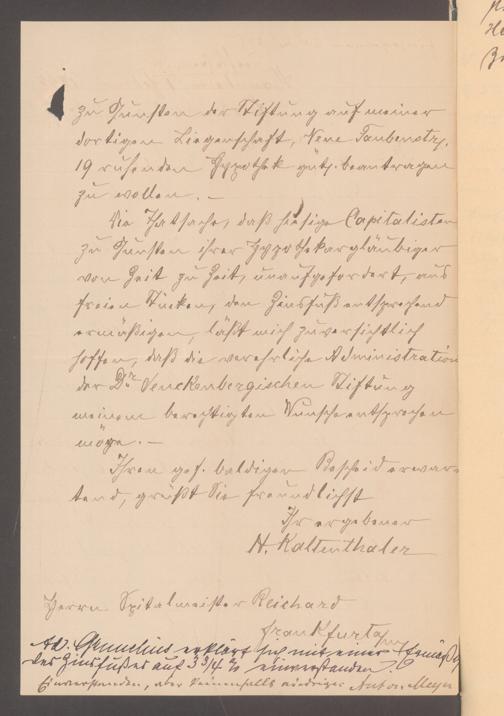 zu Gunsten der Stiftung auf meiner
dortigen Liegenschaft, Neue Taubenstr.
19 ruhenden Hypothek güt. beantragen
zu wollen. –
Die Thatsache, daß hiesige Capitalisten
zu Gunsten ihrer Hypothekargläubiger
von Zeit zu Zeit, unaufgefordert, aus
freien Stücken, den Zinsfuß entsprechend
ermäßigen, läßt mich zuversichtlich
hoffen, daß die verehrliche Administration
der Dr. Senckenbergischen Stiftung
meinem berechtigten Wunsche entsprechen
möge. –
Ihren gef. baldigen Bescheid erwar-
tend, grüßt Sie freundlichst
Ihr ergebener
H. Kaltenthaler
Herrn Spitalmeister Reichard
Frankfurt a/m
Ad. erklärt sich mit einer
des Zinsfußes auf 3 3/4 % einverstanden
Einverstanden, aber keinenfalls niedriger Anton Meyer